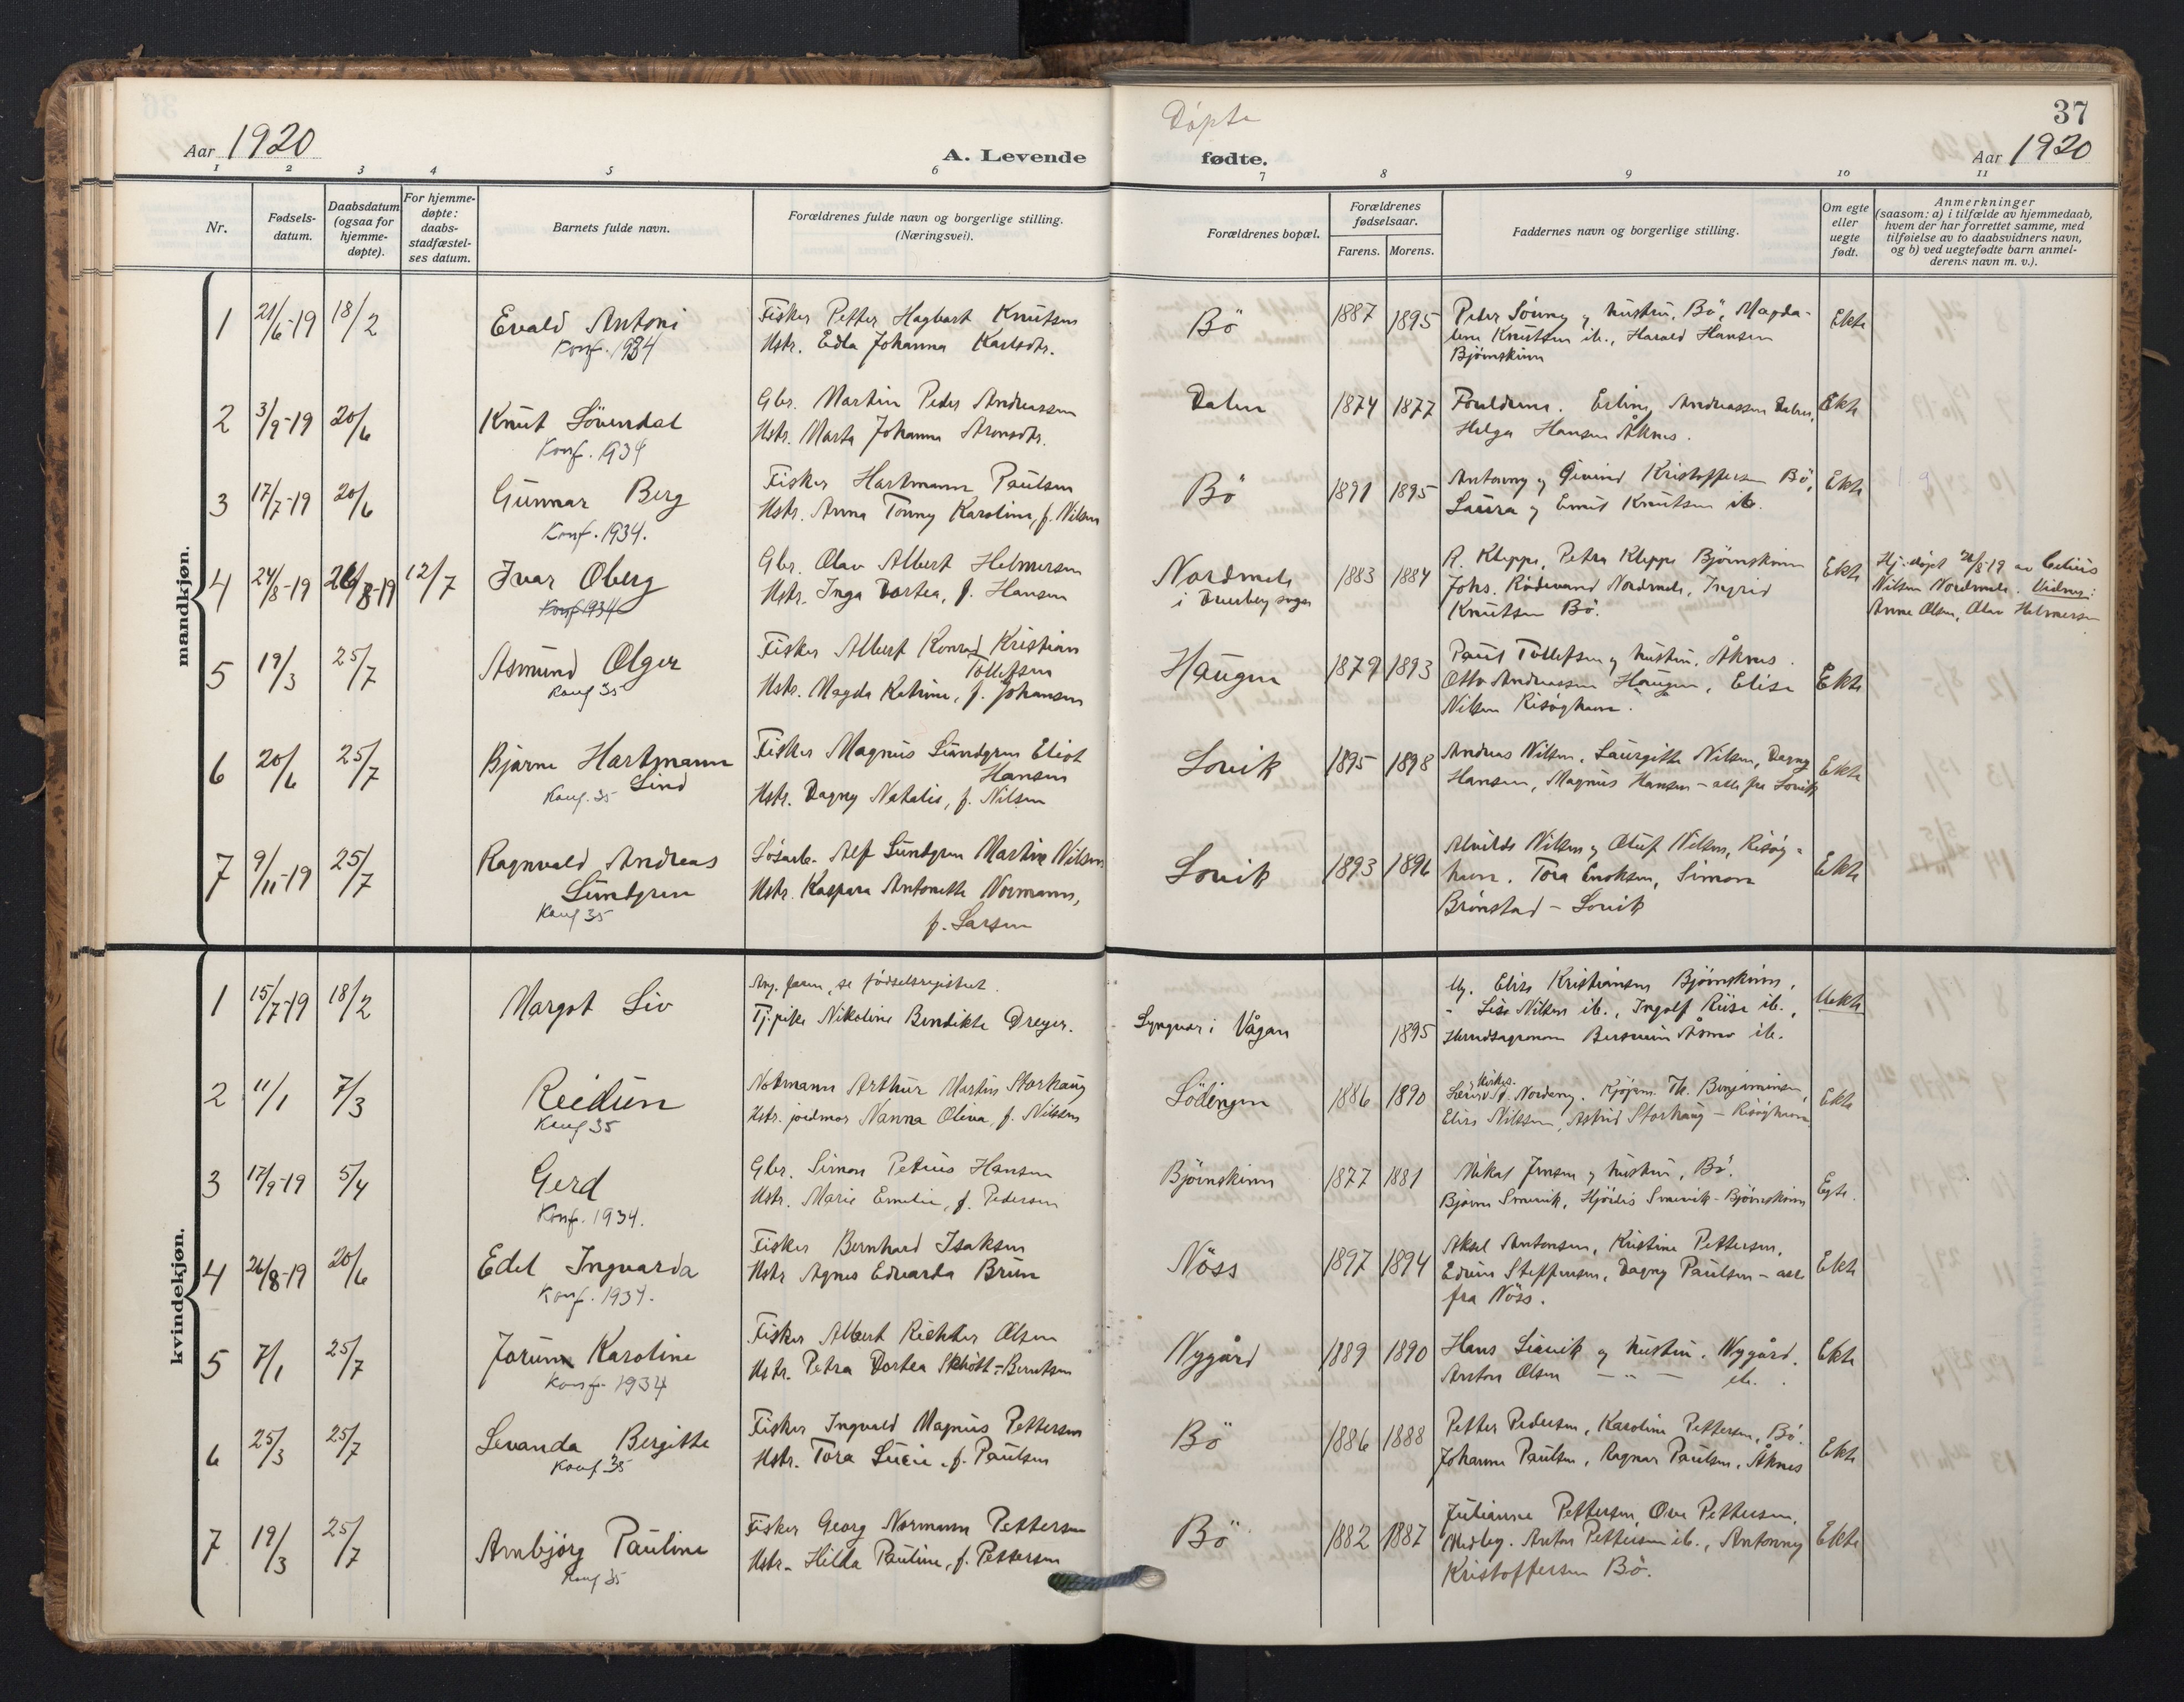 Døpte
37
Aar 1920
A. Levende
fødte.
Aar 1920
1 2 3 4 5 6 7 8 9 10 11
Nr.
Fødsels-
datum.
Daabsdatum
(ogsaa for
hjemme-
døpte).
For hjemme-
døpte:
daabs-
stadfæstel-
ses datum.
Barnets fulde navn.
Forældrenes fulde navn og borgerlige stilling.
(Næringsvei).
Forældrenes bopæl.
Forældrenes
fødselsaar.
Farens. Morens.
Faddernes navn og borgerlige stilling.
Om egte
eller
uegte
født.
Anmerkninger
(saasom: a) i tilfælde av hjemmedaab,
hvem der har forrettet samme, med
tilføielse av to daabsvidners navn,
og b) ved uegtefødte barn anmel-
derens navn m. v.).
mandkjøn.
1 21/6-19 18/2 Evald Antoni
Konf. 1934
Fisker Petter Hagbart Knutsen
Hstr. Edla Johanna Karlsdtr.
Bö 1887 1895
Peder Sönny og hustru, Bö, Magda-
lene Knutsen ib., Harald Hansen
Bjørnskinn
Ekte
2 3/9-19 20/6 Knut Lövendal
Konf. 1934
Gbr. Martin Peder Andreassen
Hstr. Marta Johanna Aronsdtr.
Dalen 1874 1877
Foreldrene. Erling Andreassen Dalen,
Helga Hansen Åknes.
Ekte
3 17/7-19 20/6 Gunnar Berg
Konf. 1934.
Fisker Hartmann Paulsen
Hstr. Anna Tonny Karoline, f. Nilsen
Bö 1891 1895
Antonny og Eivind Kristoffersen Bö,
Laura og Emil Knutsen ib.
Ekte
4 24/8-19 26/8-19 12/7 Ivar Oberg
Konf 1934
Gbr. Olav Albert Helmersen
Hstr. Inga Dortea, f. Hansen
Nordmela
i Dverberg sogn
1883 1884
R. Kleppe, Petra Kleppe Bjørnskinn
Johs. Rødsand Nordmela, Ingrid
Knutsen Bö.
Ekte
Hj. døpt 26/8-19 av Celius
Nilsen Nordmela. Vidner:
Anne Olsen, Olav Helmersen
5 19/3 25/7 Asmund Olger
Konf 35
Fisker Albert Konrad Kristian
Tollefsen
Hstr. Magda Katrine, f. Johansen
Haugen 1879 1893
Paul Tollefsen og hustru, Åknes.
Otto Andreassen Haugen, Elise
Nilsen Risøyhamn.
Ekte
6 20/6 25/7 Bjarne Hartmann
Lind
Konf. 35
Fisker Magnus Lundgren Eliot
Hansen
Hstr. Dagny Natalie, f. Nilsen
Lovik 1895 1898
Andreas Nilsen, Laurgitte Nilsen, Dagny
Hansen, Magnus Hansen - alle fra Lovik
Ekte
7 9/11-19 25/7 Ragnvald Andreas
Lundgren
Konf 35
Løsarb. Alf Lundgren Martin Nilsen
Hstr. Kaspara Antonette Normann,
f. Larsen
Lovik 1893 1896
Alvilde Nilsen og Oluf Nilsen, Risøy-
hamn. Tora Enoksen, Simon
Brønstad - Lovik
Ekte
kvindekjøn.
1 15/7-19 18/2 Margot Liv
Ang. faren, se fødselsregistret.
Tj.pike Nikoline Bendikte Dreyer.
Lyngvær i Vågan 1895
Ug. Elise Kristiansen Bjørnskinn,
" Lisa Nilsen ib., Ingolf Riise ib.,
Herredsagronom Åsmo ib.
Uekte
2 11/1 7/3 Reidun
Konf 35
Notmann Arthur Martin Storhaug
Hstr. jordmor Nanna Oliva, f. Nilssen
Lödingen 1886 1890
Kirkes.
Nordeng. Kjøpm. Th. Benjaminsen,
Elise Nilssen, Astrid Storhaug - Risøyhamn
Ekte
3 17/9-19 5/4 Gerd
Konf. 1934.
Gbr. Simon Petrus Hansen
Hstr. Marie Emilie, f. Pedersen
Bjørnskinn 1877 1881
Mikal Jensen og hustru, Bö.
Bjarne Smevik, Hjördis Smevik - Bjørnskinn
Egte.
4 26/8-19 20/6 Edel Ingvarda
Konf. 1934.
Fisker Bernhard Isaksen
Hstr Agnes Edvarda Brun
Nöss 1897 1894
Aksel Antonsen, Kristine Pettersen,
Edvin Steffensen, Dagny Paulsen - alle
fra Nöss.
Ekte
5 7/1 25/7 Jorunn Karoline
Konf. 1934
Fisker Albert Richter Olsen
Hstr. Petra Dortea Skhött-Berntsen
Nygård 1889 1890
Hans Liavik og hustru. Nygård.
Anton Olsen — " — ib.
Ekte
6 25/3 25/7 Levanda Bergitte
Konf 35
Fisker Ingvald Magnus Pettersen
Hstr. Tora Lucie, f. Paulsen
Bö 1886 1888
Petter Pedersen, Karoline Pettersen, Bö.
Johanne Paulsen, Ragnar Paulsen, Åknes
Ekte
7 19/3 25/7 Arnbjörg Pauline
Konf 35
Fisker Georg Normann Pettersen
Hstr. Hilda Pauline, f. Pettersen
Bö 1882 1887
Julianne Pettersen, Ove Pettersen,
Medby. Anton Pettersen ib., Antonny
Kristoffersen Bö.
Ekte